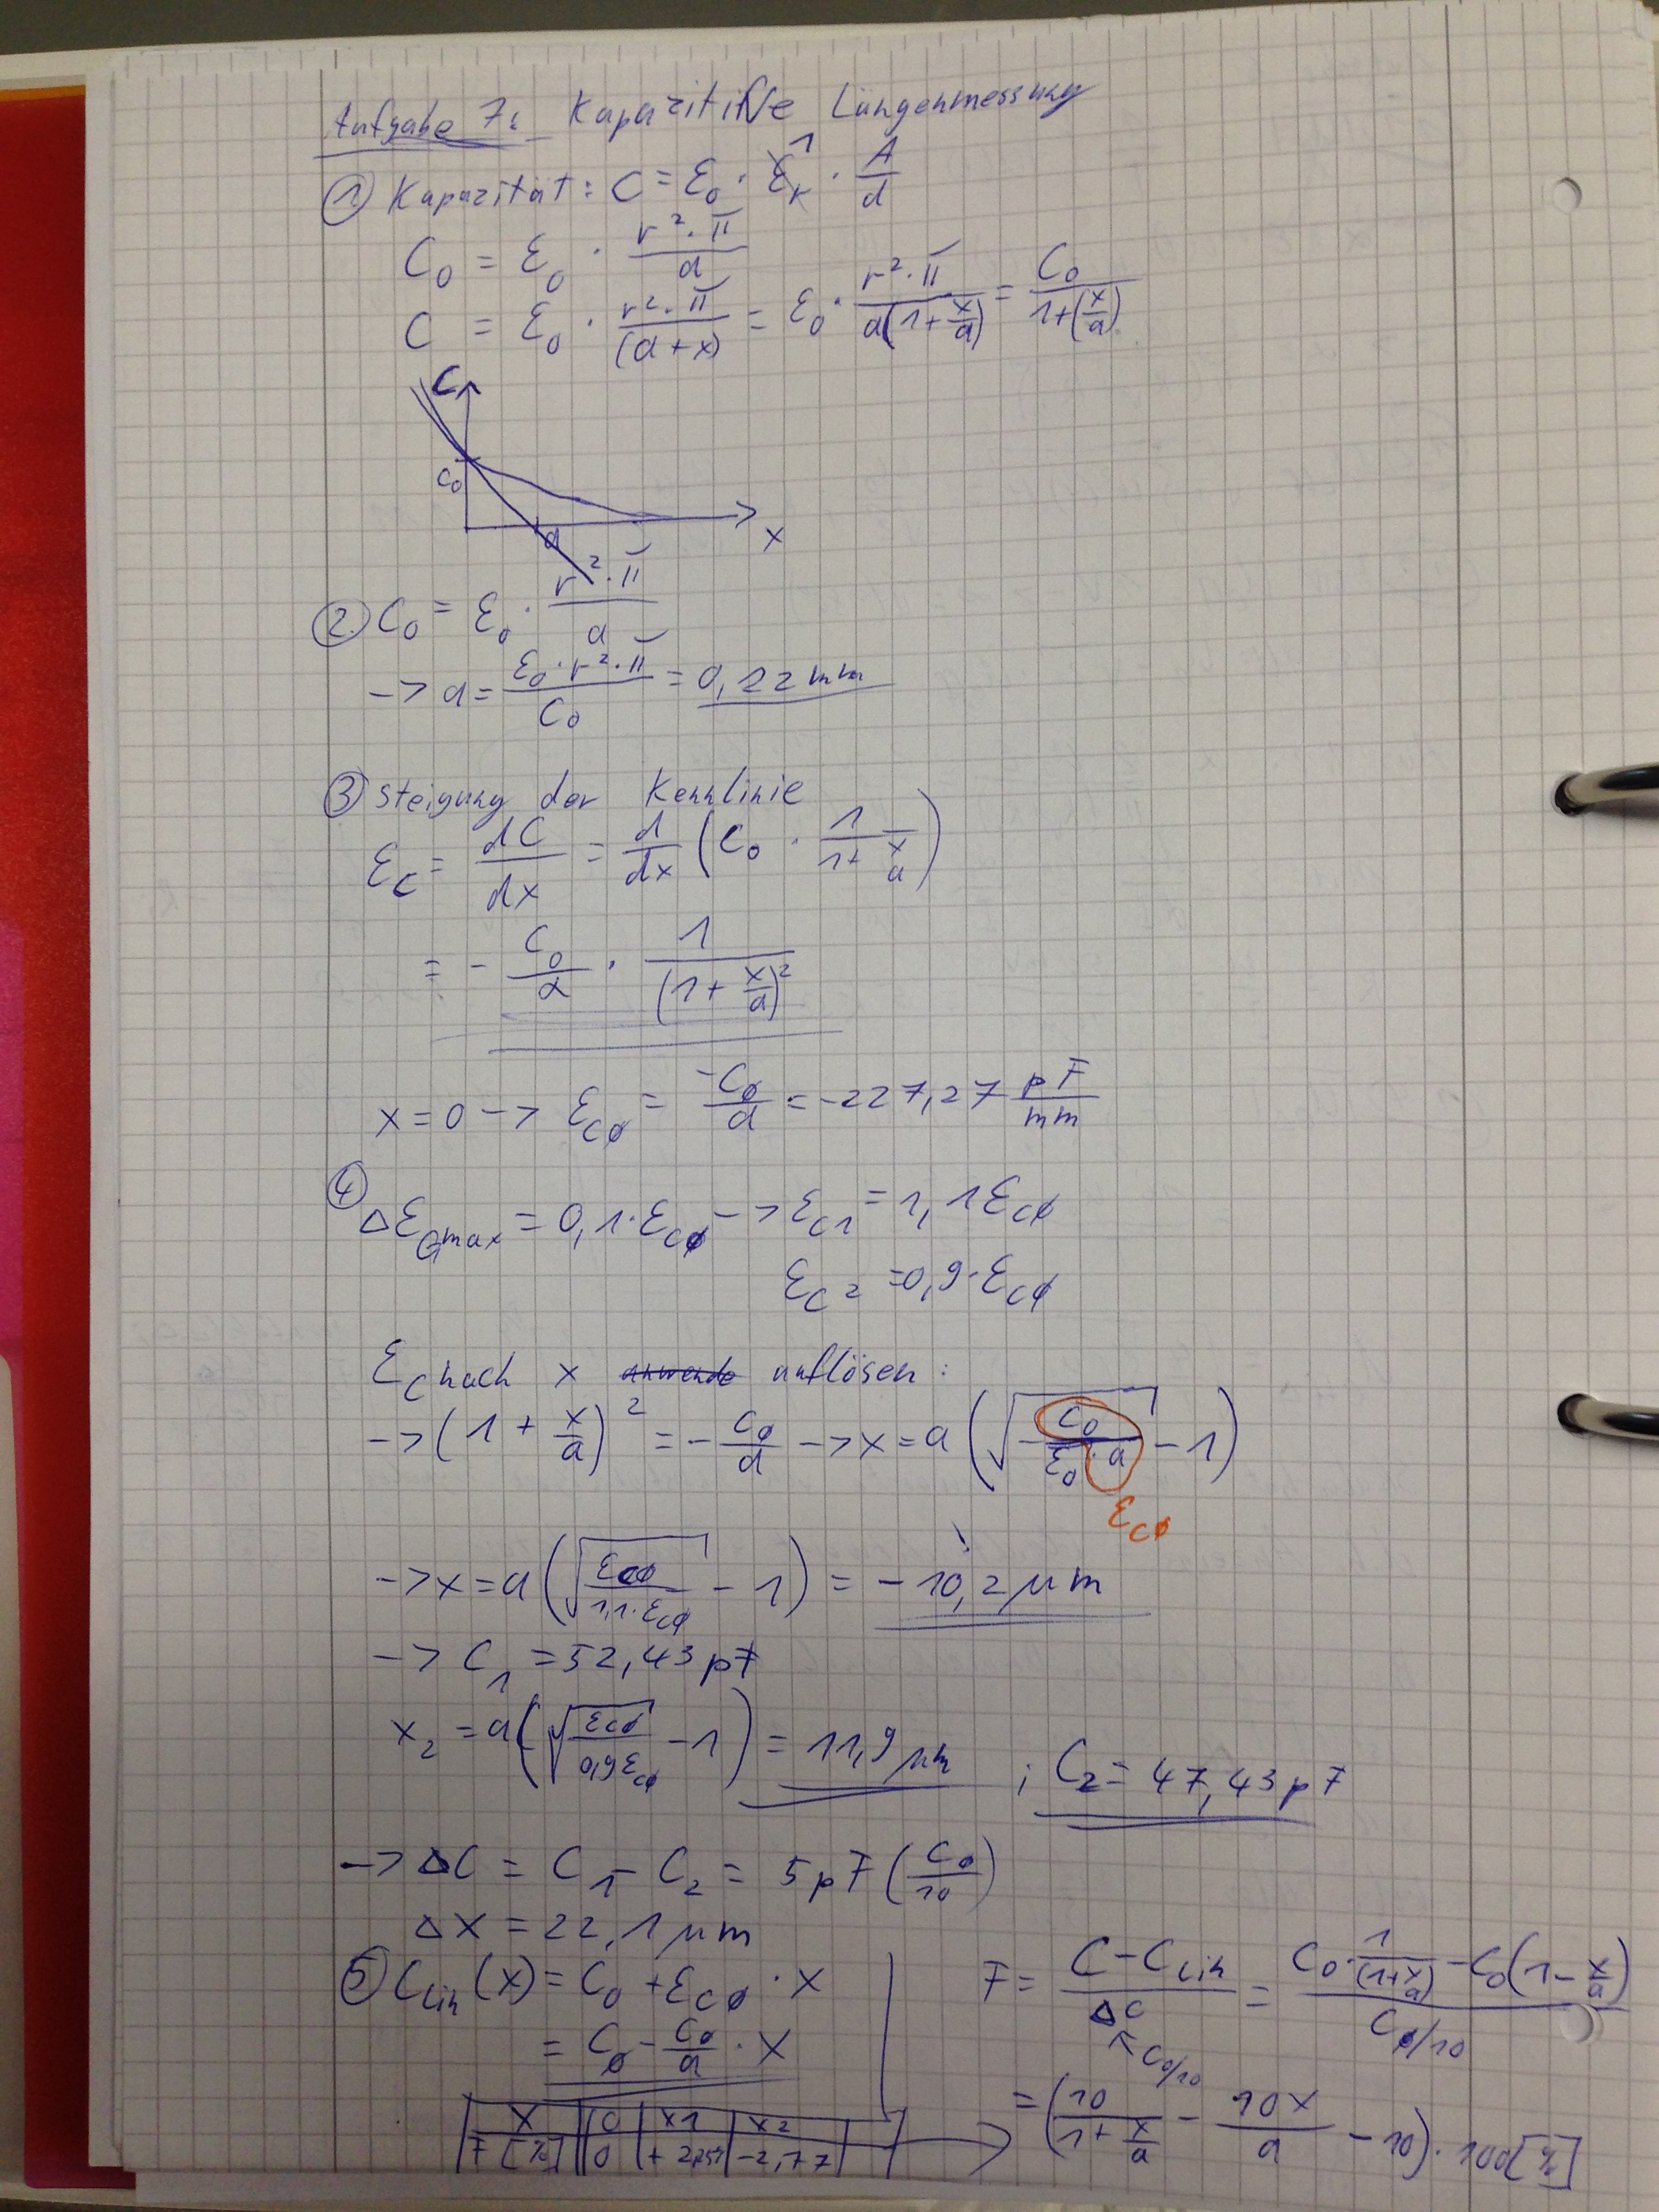 Aufgabe 7: Kapazitive Längenmessung
① Kapazität: C = ε₀ · ε_r¹ · A/d
C₀ = ε₀ · r²·π/a
C = ε₀ · r²·π/(a+x) = ε₀ · r²·π/a(1+x/a) = C₀/1+(x/a)
C
C₀
a
x
② C₀ = ε₀ · r²·π/a
-> a = ε₀·r²·π/C₀ = 0,22 mm
③ Steigung der Kennlinie
ε_C = dC/dx = d/dx (C₀ · 1/1+x/a)
= - C₀/a · 1/(1+x/a)²
x = 0 -> ε_C0 = -C₀/a = -227,27 pF/mm
④
Δε_Cmax = 0,1·ε_C0 -> ε_C1 = 1,1 ε_C0
ε_C2 = 0,9·ε_C0
ε_C nach x auflösen:
-> (1 + x/a)² = - C₀/a -> x = a (√(-C₀/ε₀·a) - 1)
ε_C0
-> x = a (√(ε_C0/1,1·ε_C0) - 1) = -10,2 µm
-> C₁ = 52,43 pF
x₂ = a (√(ε_C0/0,9ε_C0) - 1) = 11,9 µm ; C₂ = 47,43 pF
-> ΔC = C₁ - C₂ = 5 pF (C₀/10)
Δx = 22,1 µm
⑤ C_lin(x) = C₀ + ε_C0 · x
= C₀ - C₀/a · x
x | 0 | x1 | x2
F [%] | 0 | + 2,257 | -2,77
F = C - C_lin/ΔC = C₀·1/(1+x/a) - C₀(1 - x/a)/C₀/10
C₀/10
= (10/1+x/a - 10x/a - 10)·100[%]